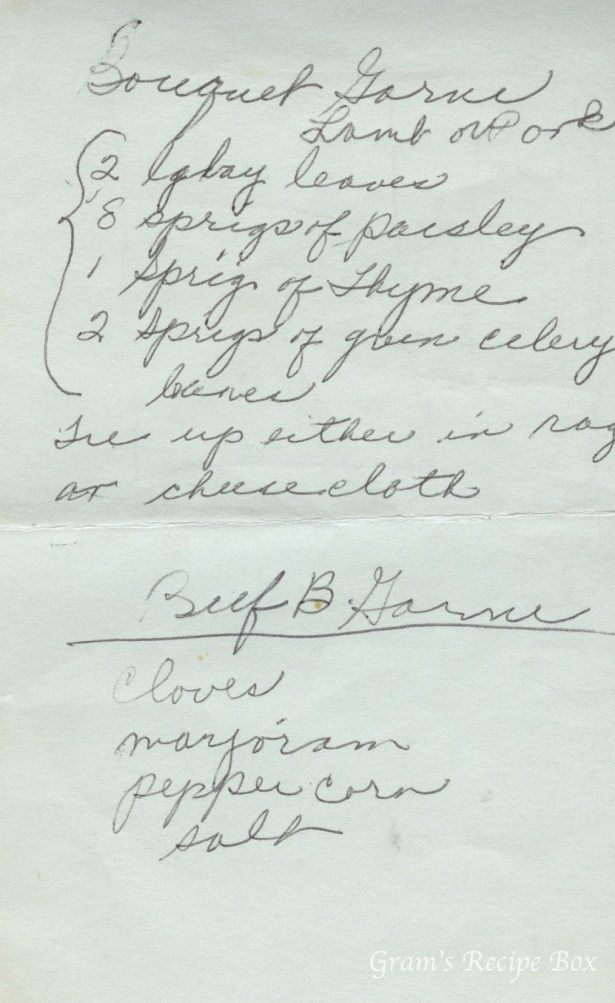 Bouquet Garni
Lamb or Pork
2 lg bay leaves
8 sprigs of parsley
1 Sprig of Thyme
2 Sprigs of green celery
leaves
Tie up either in rag
or cheese cloth
Beef B. Garni
cloves
marjoram
pepper corn
salt
Gram's Recipe Box